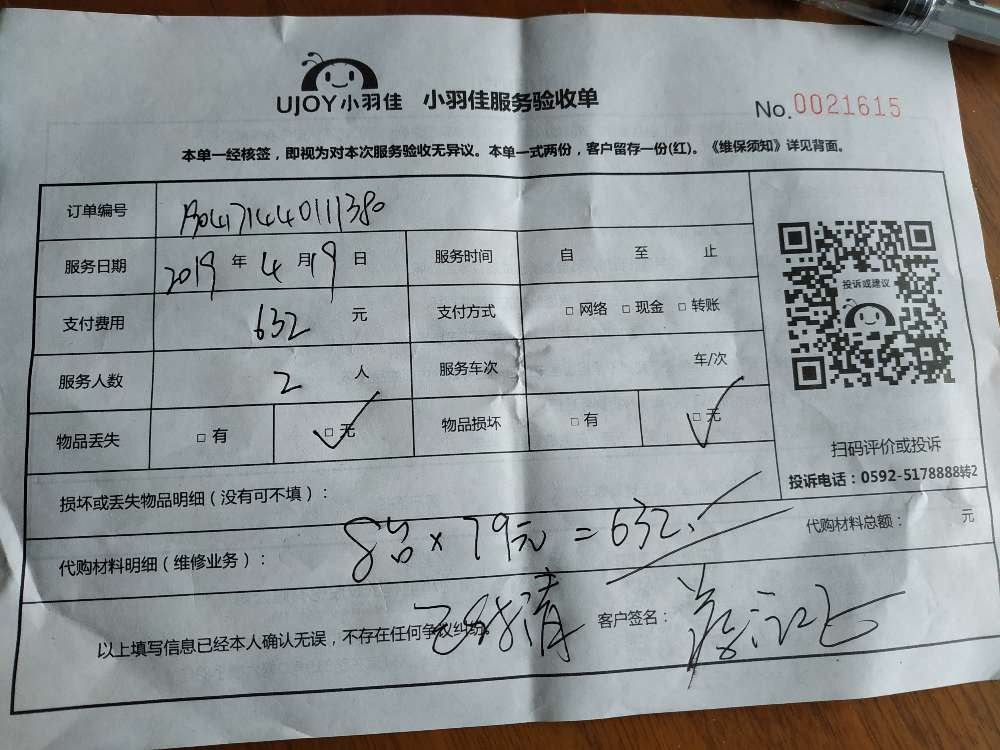 UJOY小羽佳 小羽佳服务验收单 No.0021615
本单一经核签，即视为对本次服务验收无异议。本单一式两份，客户留存一份(红)。《维保须知》详见背面。
订单编号
服务日期 2019 年 4 月 19 日 服务时间 自 至 止
投诉或建议
支付费用 632 元 支付方式 □ 网络 □ 现金 □ 转账
服务人数 2 人 服务车次 车/次
物品丢失 □ 有 □ 无 物品损坏 □ 有 □ 无
扫码评价或投诉
投诉电话：0592-5178888转2
损坏或丢失物品明细（没有可不填）：
代购材料明细（维修业务）： 8台 × 79元 = 632. 代购材料总额： 元
以上填写信息已经本人确认无误，不存在任何争议纠纷。 客户签名：